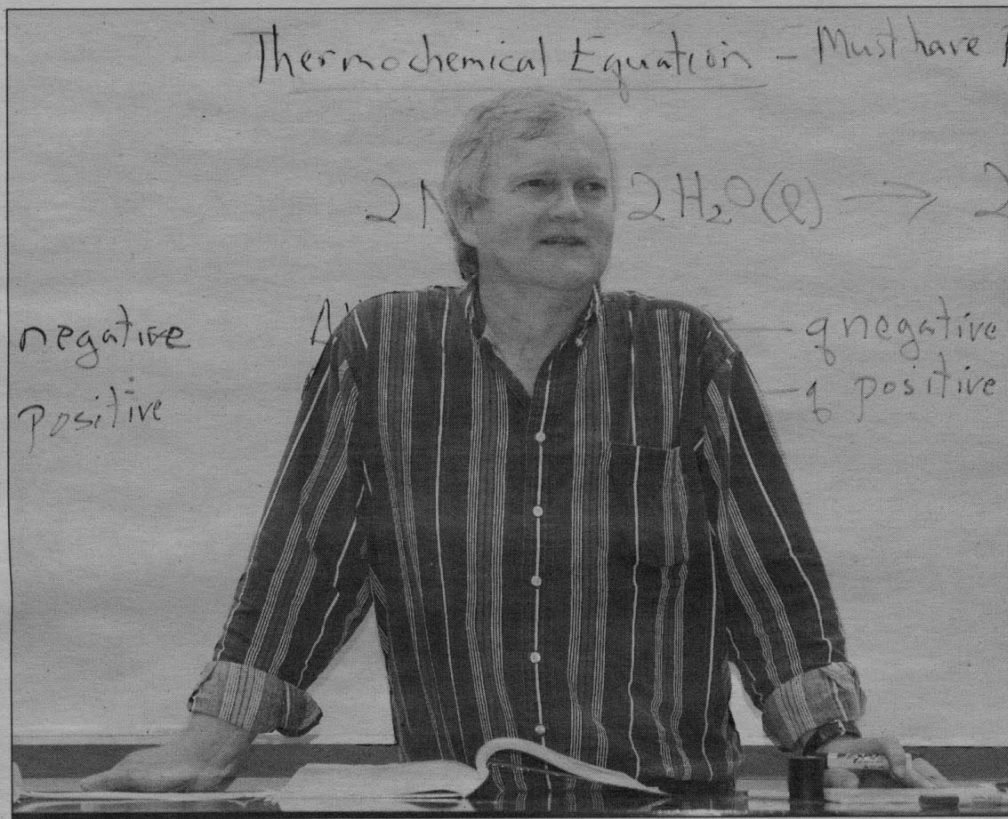 Thermochemical Equation - Must have
2N 2H₂O(l) → 2
negative ΔH — q negative
positive — q positive